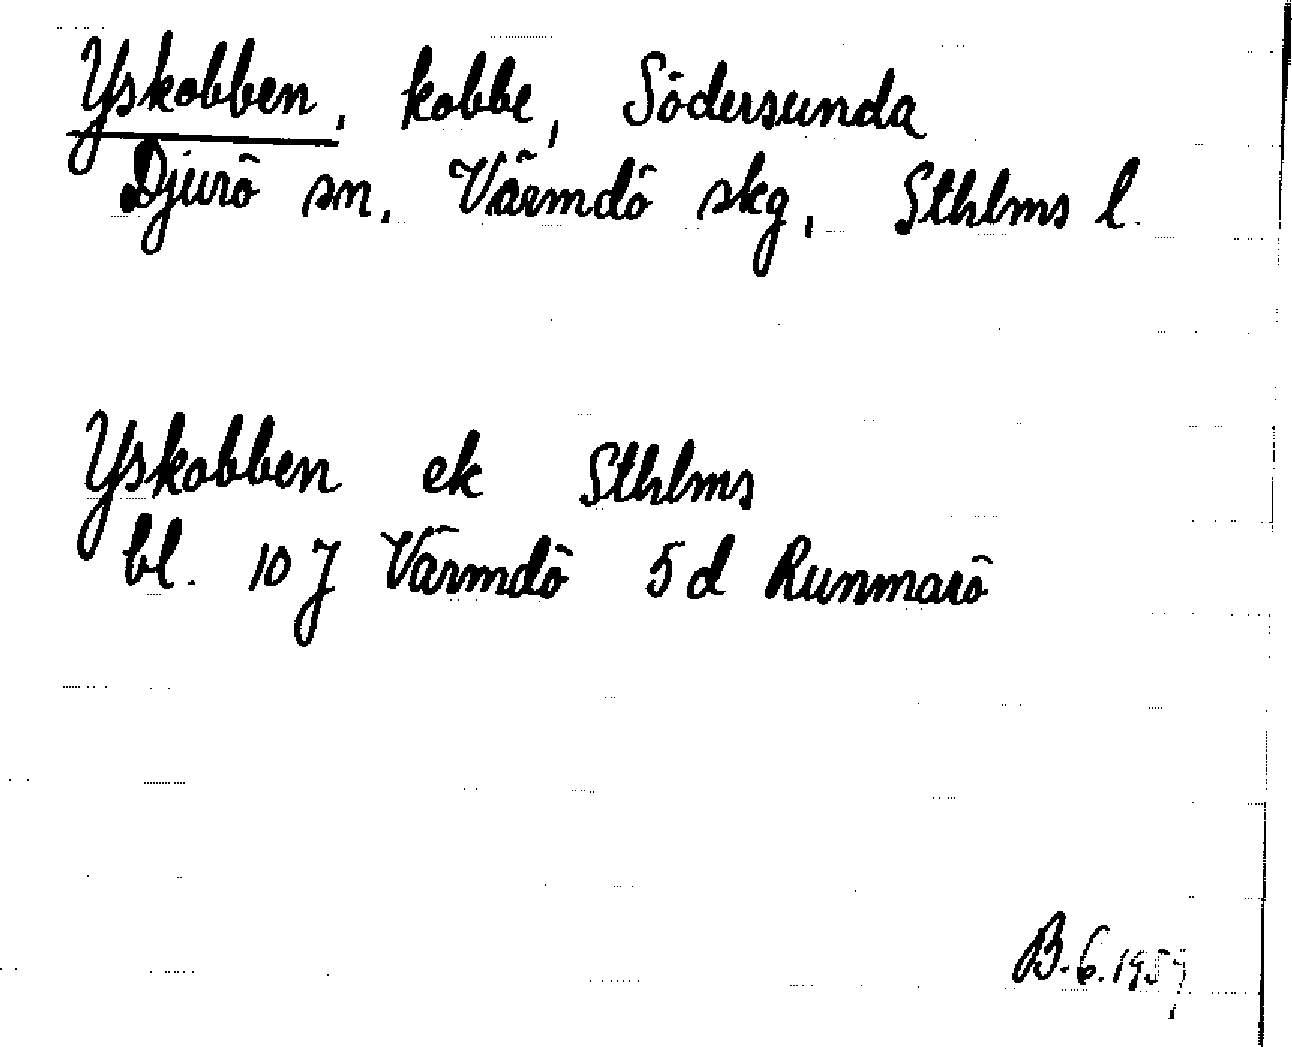 Yskobben, kobbe, Södersunda
Djurö sn, Värmdö skg, Sthlms l.
Yskobben ek Sthlms
bl. 10 J Värmdö 5 d Runmarö
B. 6. 1959